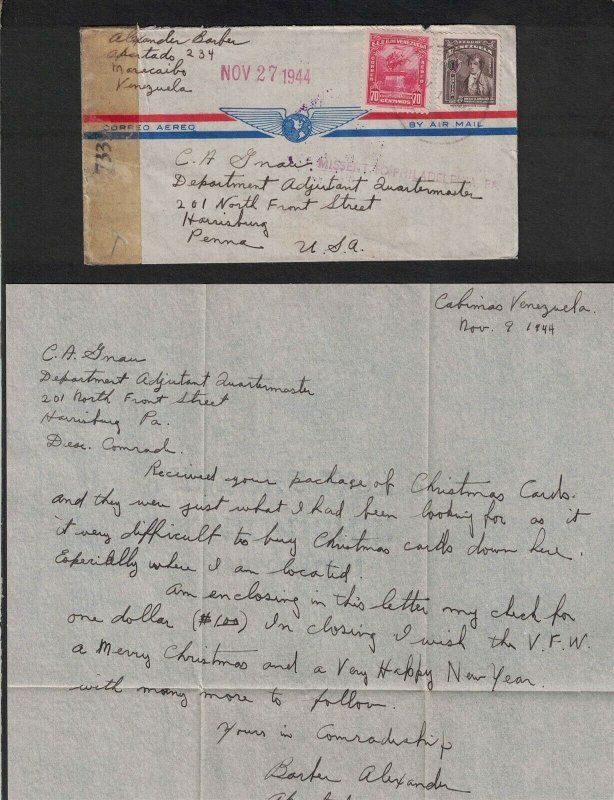 Alexander Barber
Apartado 234
Maracaibo
Venezuela
NOV 27 1944
E.E.U.U. DE VENEZUELA
CORREO
AEREO
70
CENTIMOS
70
VENEZUELA
CORREO AEREO
BY AIR MAIL
733
MISSENT TO PHILADELPHIA, PA.
C. A Gnau.
Department Adjutant Quartermaster
201 North Front Street
Harrisburg
Penna U.S.A.
Cabimas Venezuela.
Nov. 9 1944
C. A. Gnau
Department Adjutant Quartermaster
201 North Front Street
Harrisburg Pa.
Dear Comrad.
Received your package of Christmas Cards.
and they were just what I had been looking for as it
it very difficult to buy Christmas cards down here.
Especially where I am located.
Am enclosing in this letter my check for
one dollar ($1.00) In closing I wish the V.F.W.
a Merry Christmas and a Very Happy New Year.
with many more to follow.
Yours in Comradeship
Barber Alexander